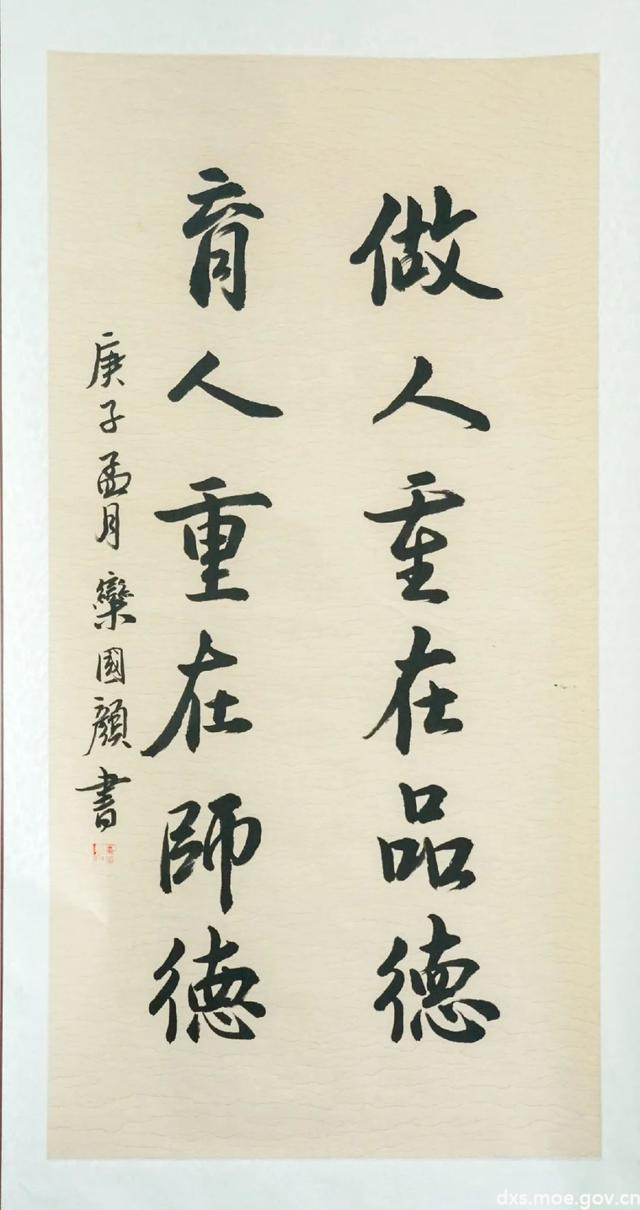 做人重在品德
育人重在師德
庚子孟月 欒國顏書
dxs.moe.gov.cn